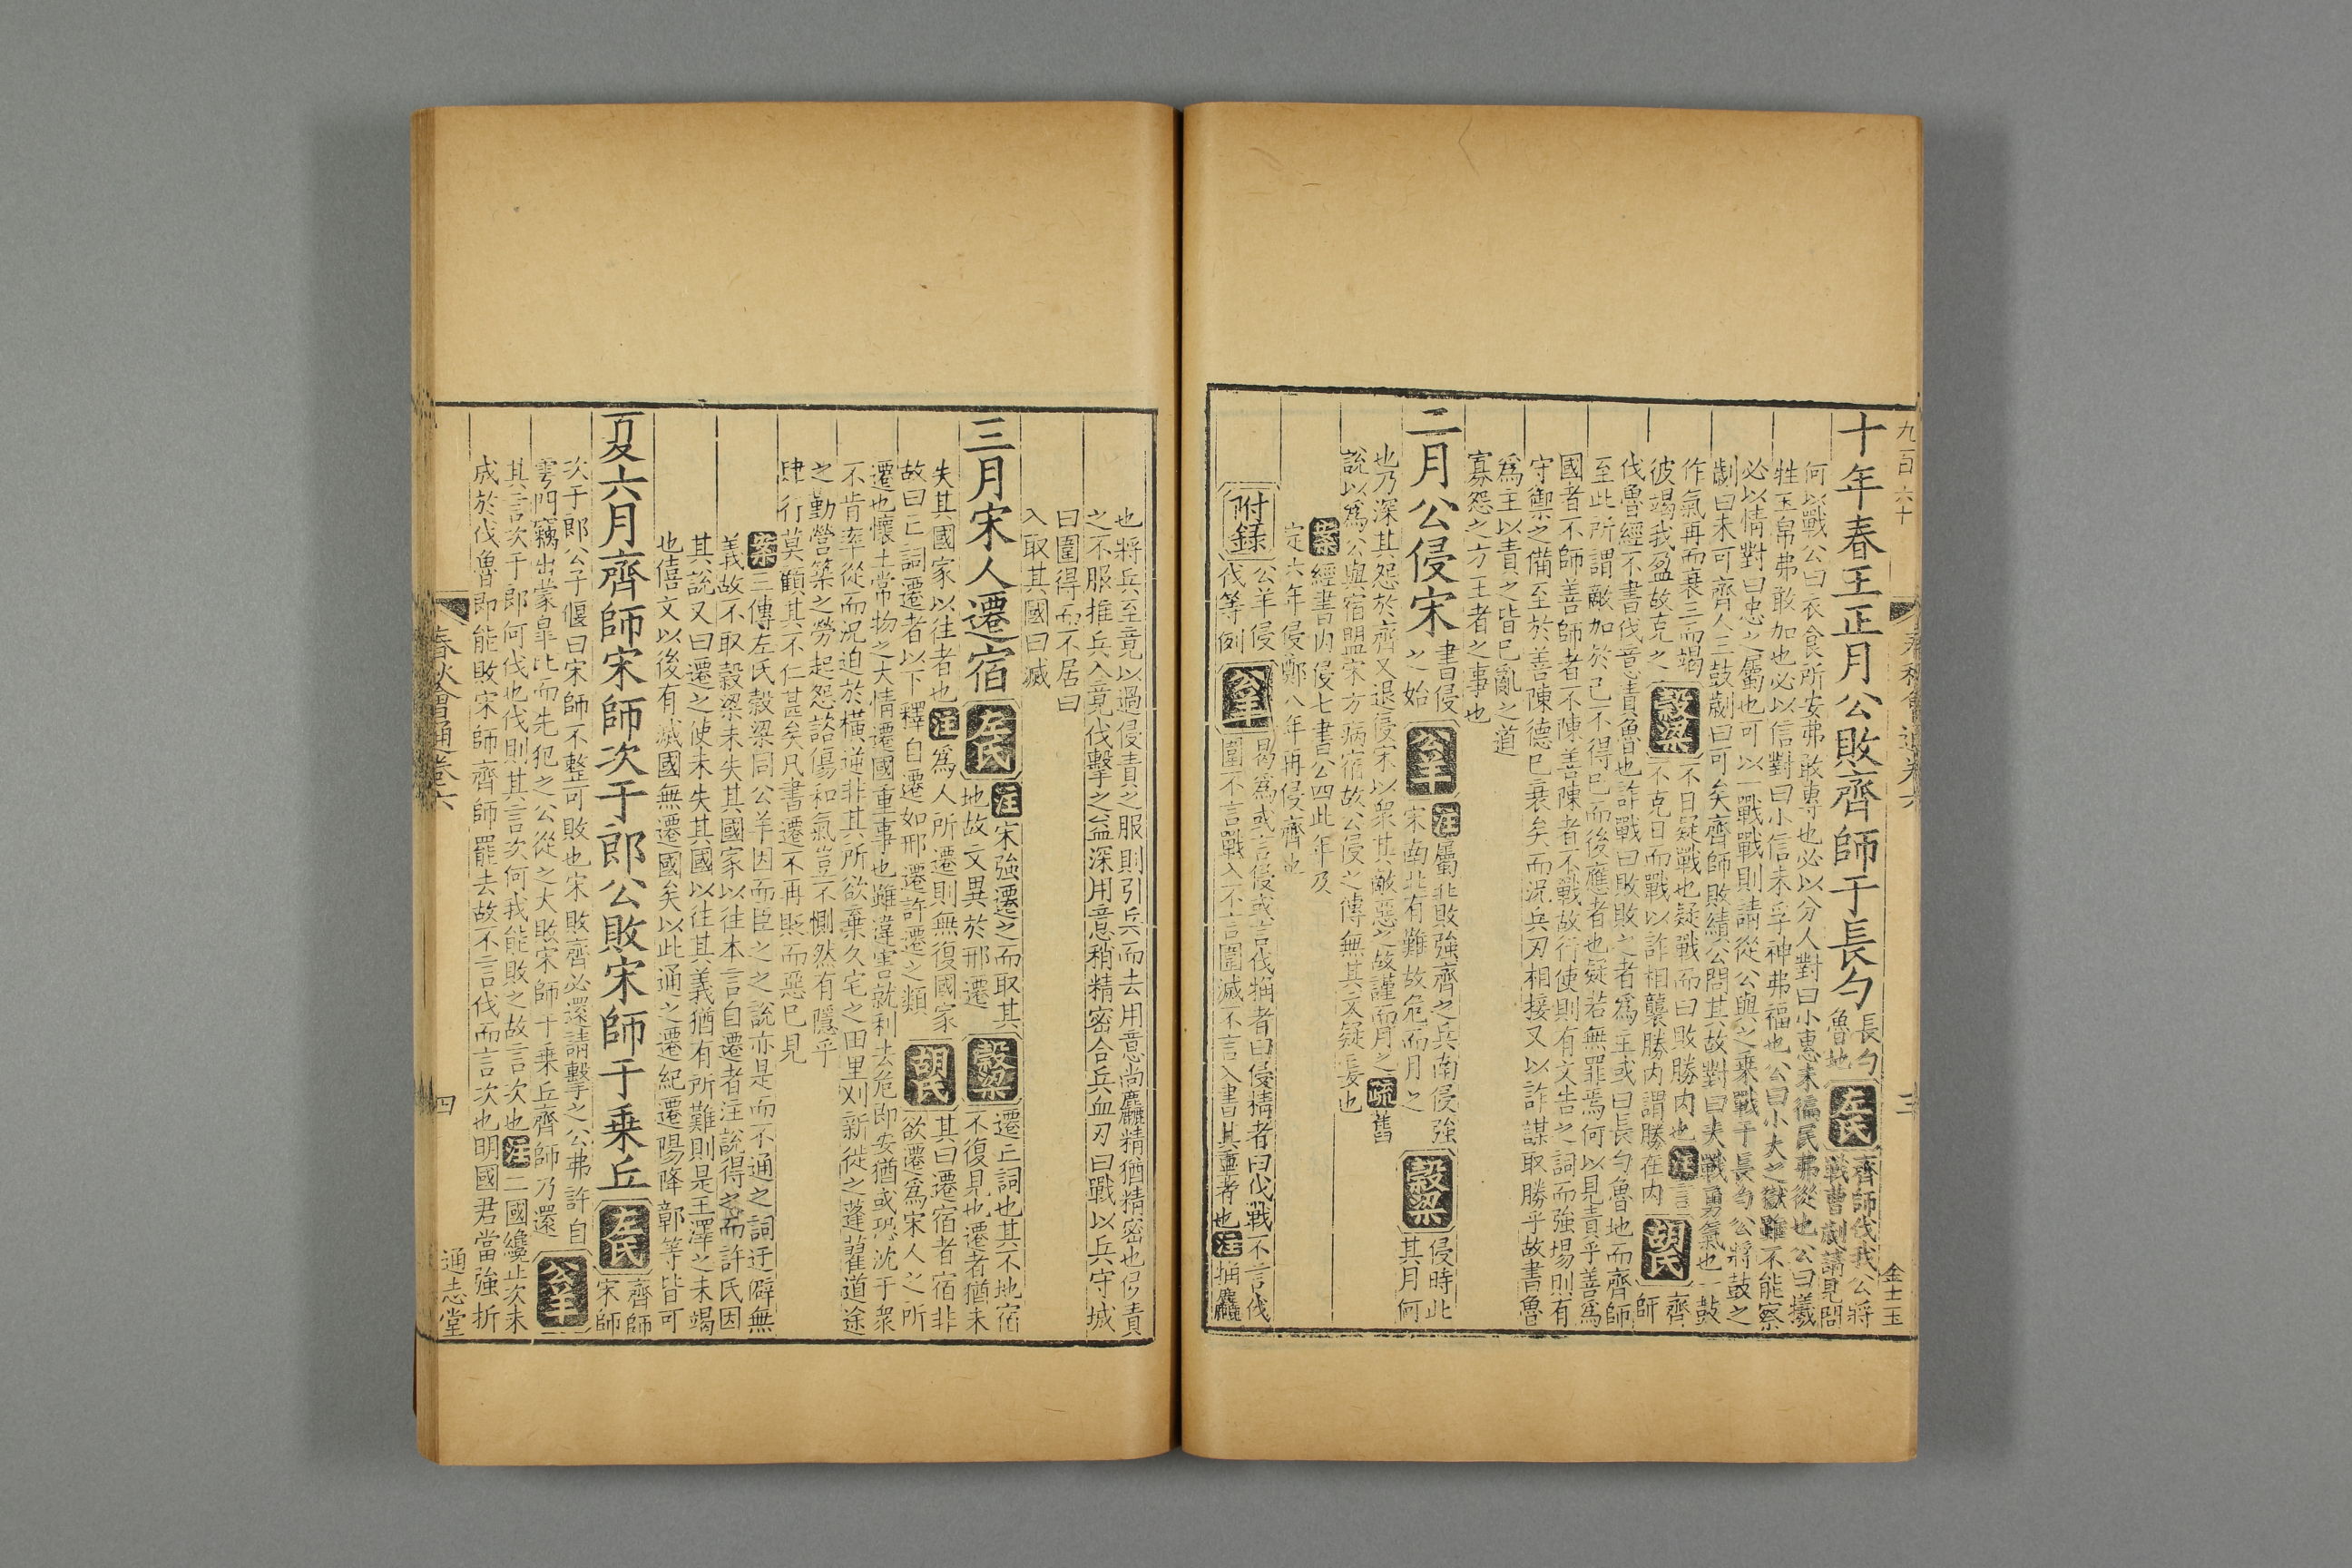 九百六十 春秋會通卷六 三 金士玉
十年春王正月公敗齊師于長勺
長勺
魯地
左氏
齊師伐我公將
戰曹劌請見問
何以戰公曰衣食所安弗敢專也必以分人對曰小惠未徧民弗從也公曰犧
牲玉帛弗敢加也必以信對曰小信未孚神弗福也公曰小大之獄雖不能察
必以情對曰忠之屬也可以一戰戰則請從公與之乘戰于長勺公將鼓之
劌曰未可齊人三鼓劌曰可矣齊師敗績公問其故對曰夫戰勇氣也一鼓
作氣再而衰三而竭
彼竭我盈故克之
穀梁
不日疑戰也疑戰而曰敗勝內也注言
不克日而戰以詐相襲勝內謂勝在內
胡氏
齊
師
伐魯經不書伐意責魯也詐戰曰敗敗之者爲主或曰長勺魯地而齊師
至此所謂敵加於己不得已而後應者也疑若無罪焉何以見責乎善爲
國者不師善師者不陳善陳者不戰故行使則有文告之詞而強埸則有
守禦之備至於善陳德已衰矣而況兵刃相接又以詐謀取勝乎故書魯
爲主以責之皆已亂之道
寡怨之方王者之事也
二月公侵宋
書侵
之始
公羊
注屬北敗強齊之兵南侵強
宋南北有難故危而月之
穀梁
侵時此
其月何
也乃深其怨於齊又退侵宋以衆其敵惡之故謹而月之疏舊
說以爲公與宿盟宋方病宿故公侵之傳無其文疑妄也
案經書內侵七書公四此年及
定六年侵鄭八年再侵齊也
附録
公羊侵
伐等例
公羊
曷爲或言侵或言伐觕者曰侵精者曰伐戰不言伐
圍不言戰入不言圍滅不言入書其重者也注觕麤
也將兵至竟以過侵責之服則引兵而去用意尚麤精猶精密也侵責
之不服推兵入竟伐擊之益深用意稍精密合兵血刃曰戰以兵守城
曰圍得而不居曰
入取其國曰滅
三月宋人遷宿
左氏
注宋強遷之而取其
地故文異於邢遷
穀梁
遷亡詞也其不地宿
不復見也遷者猶未
失其國家以往者也注爲人所遷則無復國家
故曰亡詞遷者以下釋自遷如邢遷許遷之類
胡氏
其曰遷宿者宿非
欲遷爲宋人之所
遷也懷土常物之大情遷國重事也雖違害就利去危即安猶或恐沈于衆
不肯率從而況迫於橫逆非其所欲棄久宅之田里刈新徙之蓬藋道途
之勤營築之勞起怨諮傷和氣豈不惻然有隱乎
肆行莫顧其不仁甚矣凡書遷不再貶而惡已見
案三傳左氏穀梁同公羊因而臣之之說亦是而不通之詞迂僻無
義故不取穀梁未失其國家以往本言自遷者注說得之而許氏因
其說又曰遷之使未失其國以往其義猶有所難則是王澤之未竭
也僖文以後有滅國無遷國矣以此通之遷紀遷陽降鄣等皆可
夏六月齊師宋師次于郎公敗宋師于乗丘
左氏
齊師
宋師
次于郎公子偃曰宋師不整可敗也宋敗齊必還請擊之公弗許自
雩門竊出蒙臯比而先犯之公從之大敗宋師于乗丘齊師乃還
公羊
其言次于郎何伐也伐則其言次何我能敗之故言次也注二國纔止次未
成於伐魯即能敗宋師齊師罷去故不言伐而言次也明國君當強折
春秋會通卷六 四 通志堂